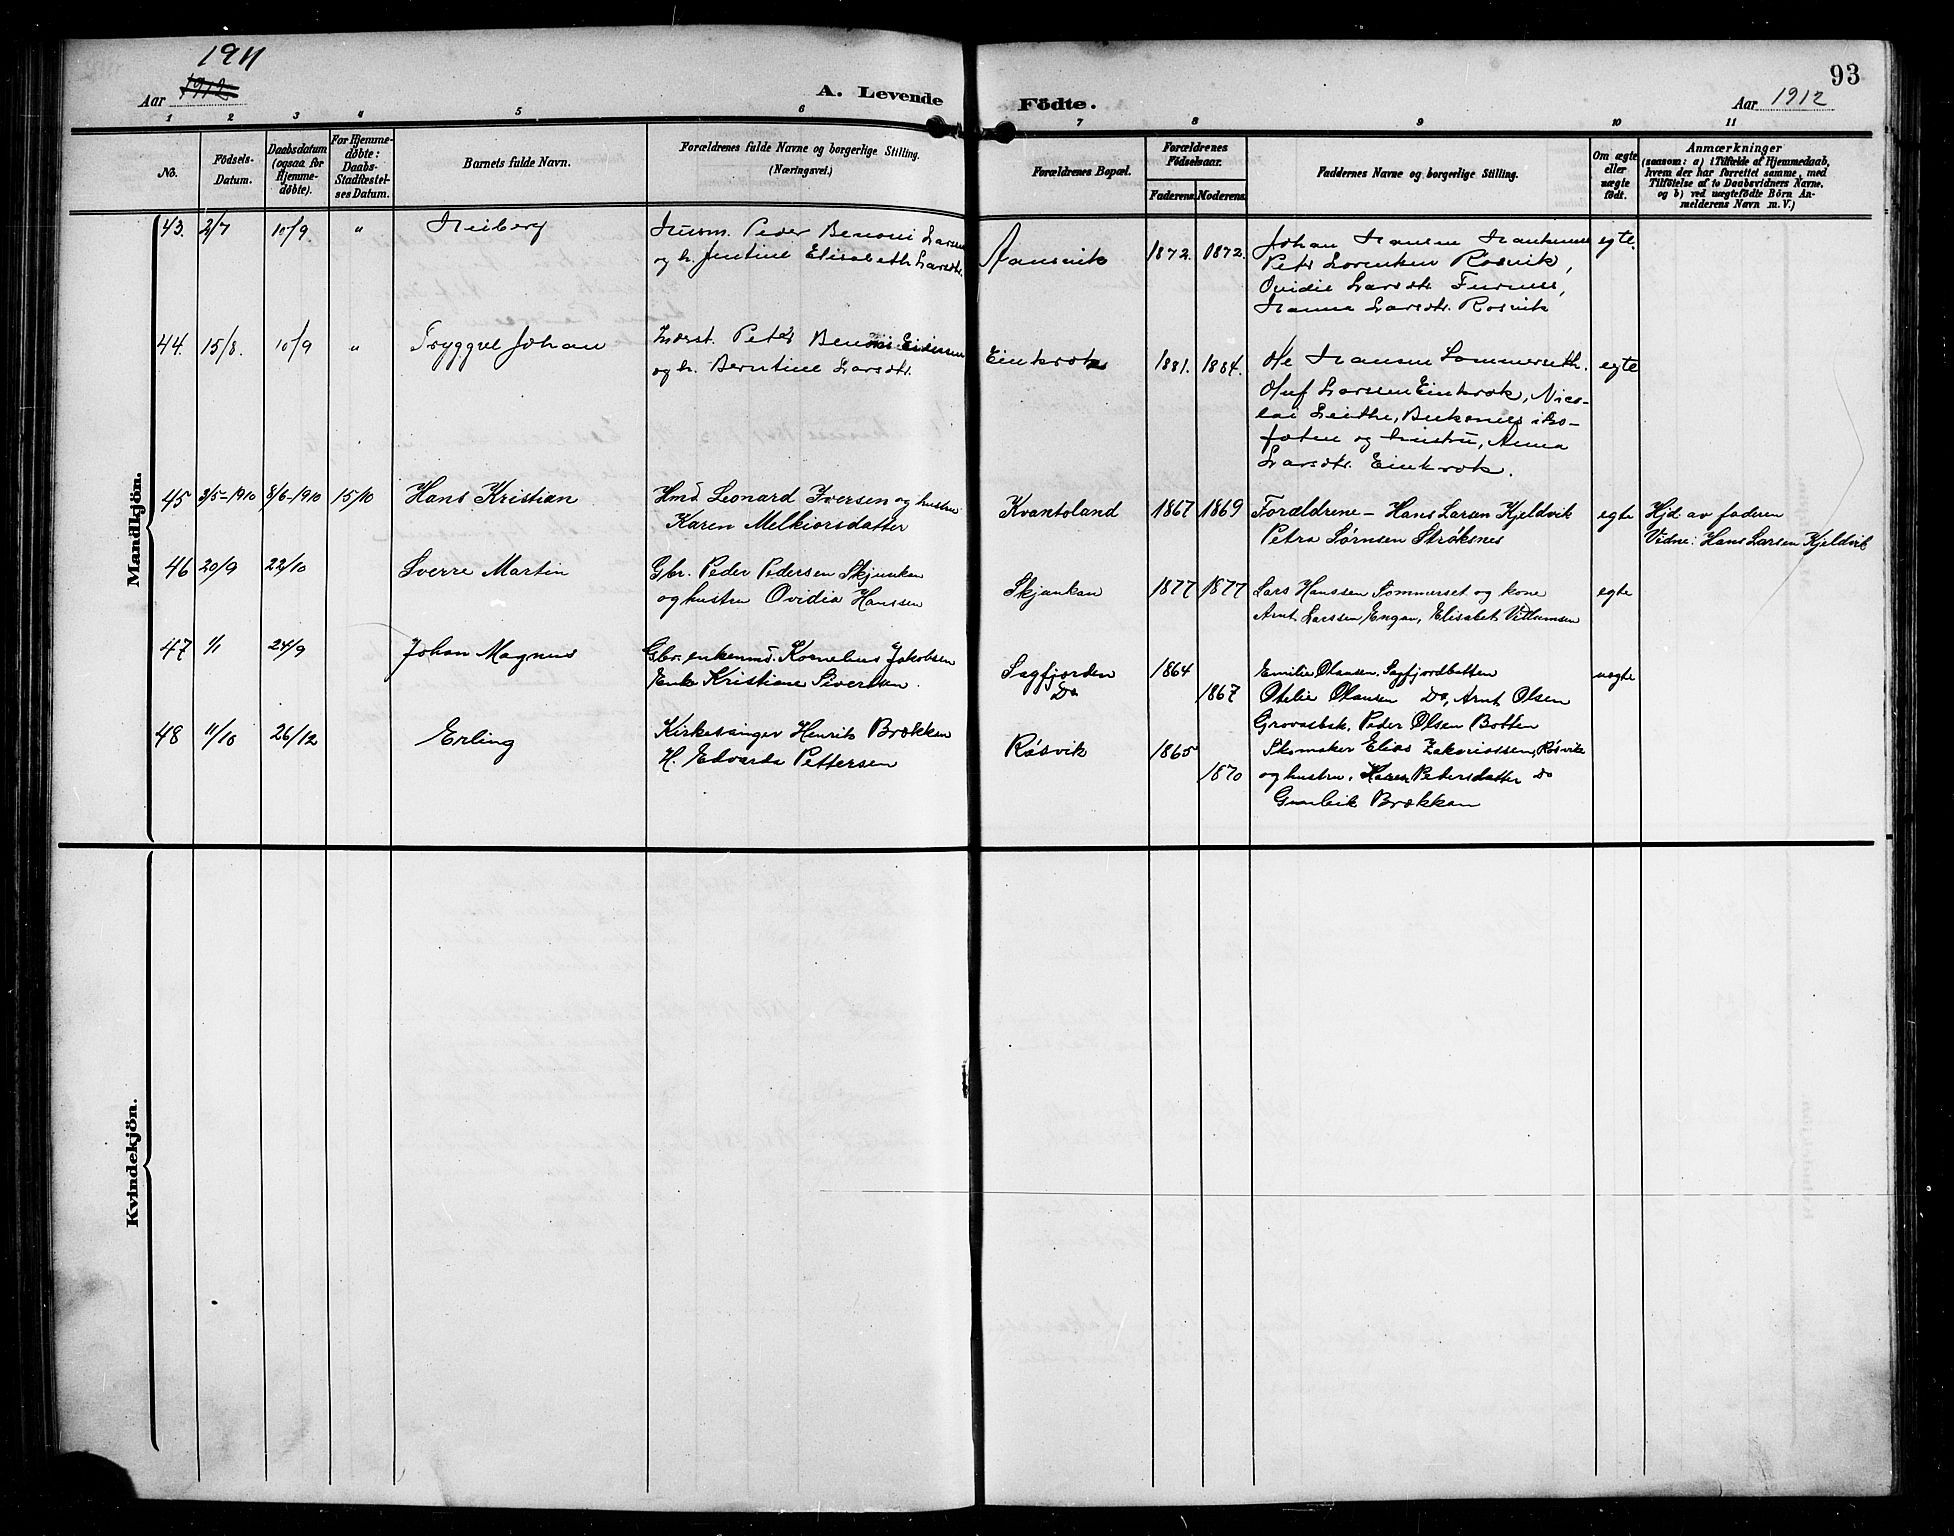 1911
Aar 1912
A. Levende Födte.
93
Aar 1912
1 2 3 4 5 6 7 8 9 10 11
No.
Födsels-Datum.
Daabsdatum (ogsaa for Hjemme-döbte).
For Hjemme-döbte: Daabs-Stadfæstel-ses Datum.
Barnets fulde Navn.
Forældrenes fulde Navne og borgerlige Stilling.
(Næringsvei.)
Forældrenes Bopæl.
Forældrenes Födselsaar.
Faderens. Moderens.
Faddernes Navne og borgerlige Stilling.
Om ægte eller uægte födt.
Anmærkninger
(saasom: a) i Tilfælde af Hjemmedaab,
hvem der har forrettet samme, med
Tilföielse af to Daabsvidners Navne,
og b) ved uægtefödte Börn An-
melderens Navn m. V.)
Mandkjön.
43. 2/7 10/9 "
Husm. Peder Benoni Larsen
og h. Jentine Elisabeth Larsdtr.
1872. 1872.
Johan Hansen
Petr Lorentsen Rosvik,
Ovidie Larsdtr. Furnes,
Hanna Larsdtr. Rosvik
egte.
44. 15/8. 10/9 "
Tryggve Johan
Inderst. Peter Benoni
og h. Berntine Larsdtr.
Einkrok
1881. 1884.
Ole Hansen Sommerseth.
Oluf Larsen Einkrok, Nico-
lai
foten og hustru, Anna
Larsdtr. Einkrok.
egte
45 3/5-1910 8/6-1910 15/10
Hans Kristian
Hmd Leonard Iversen og hustru
Karen Melkiorsdatter
Kvantoland
1867 1869
Forældrene - Hans Larsen Kjeldvik
Petra Sørnsen Strøksnes
egte
Hjd av faderen
Vidne: Hans Larsen Kjeldvik
46 20/9 22/10
Sverre Martin
Gbr. Peder Pedersen Skjunkan
og hustru Ovidia Hanssen
Skjunkan
1877 1877
Lars Hanssen Sommerset og kone
Arnt Larssen Engan, Elisabet Villumsen
egte
47 1/1 24/9
Johan Magnus
Gbr. enkemd. Kornelius Jakobsen
Enke Kristiane Sivertsen.
Sagfjorden
Do
1864
1867
Emilie Olaussen, Sagfjordbotten
Otelie Olausen Do, Arnt Olsen
Grovasbak, Peder Olsen Botten
uegte
48 11/10 26/12
Erling
Kirkesanger Henrik Brækkan
H. Edvarda Pettersen
Røsvik
1865
1870
Skomaker Elias Zakariassen, Røsvik
og hustru, Karen Petersdatter Do
Gunleik Brækkan
Kvindekjön.